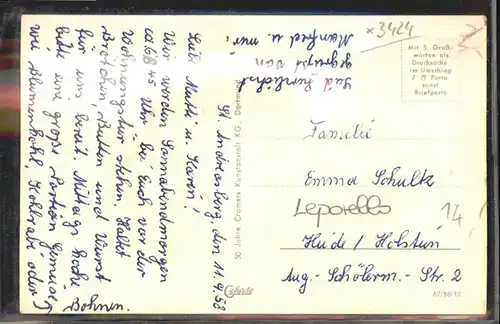 St. Andreasberg, den 11.9.58
Liebe Mutti u. Karin!
Wir werden Sonnabendmorgen
ca 6 45 Uhr bei Euch vor der
Wohnungstür stehen, Haltet
Brötchen, Butter und Wurst
für uns bereit. Mittags koche
bitte eine große Portion Gemüse,
wie Blumenkohl, Kohlrabi oder
Bohnen.
Seid herzlichst
gegrüßt von
Manfred u. mir.
50 Jahre Cramers Kunstanstalt KG., Dortmund
Cekade
×3424
Mit 5 Gruß-
worten als
Drucksache
im Umschlag
7 Pf Porto
sonst
Briefporto
Familie
Emma Schultz
Leporello
14
Heide / Holstein
Aug.-Schölerm.-Str. 2
67/58/12